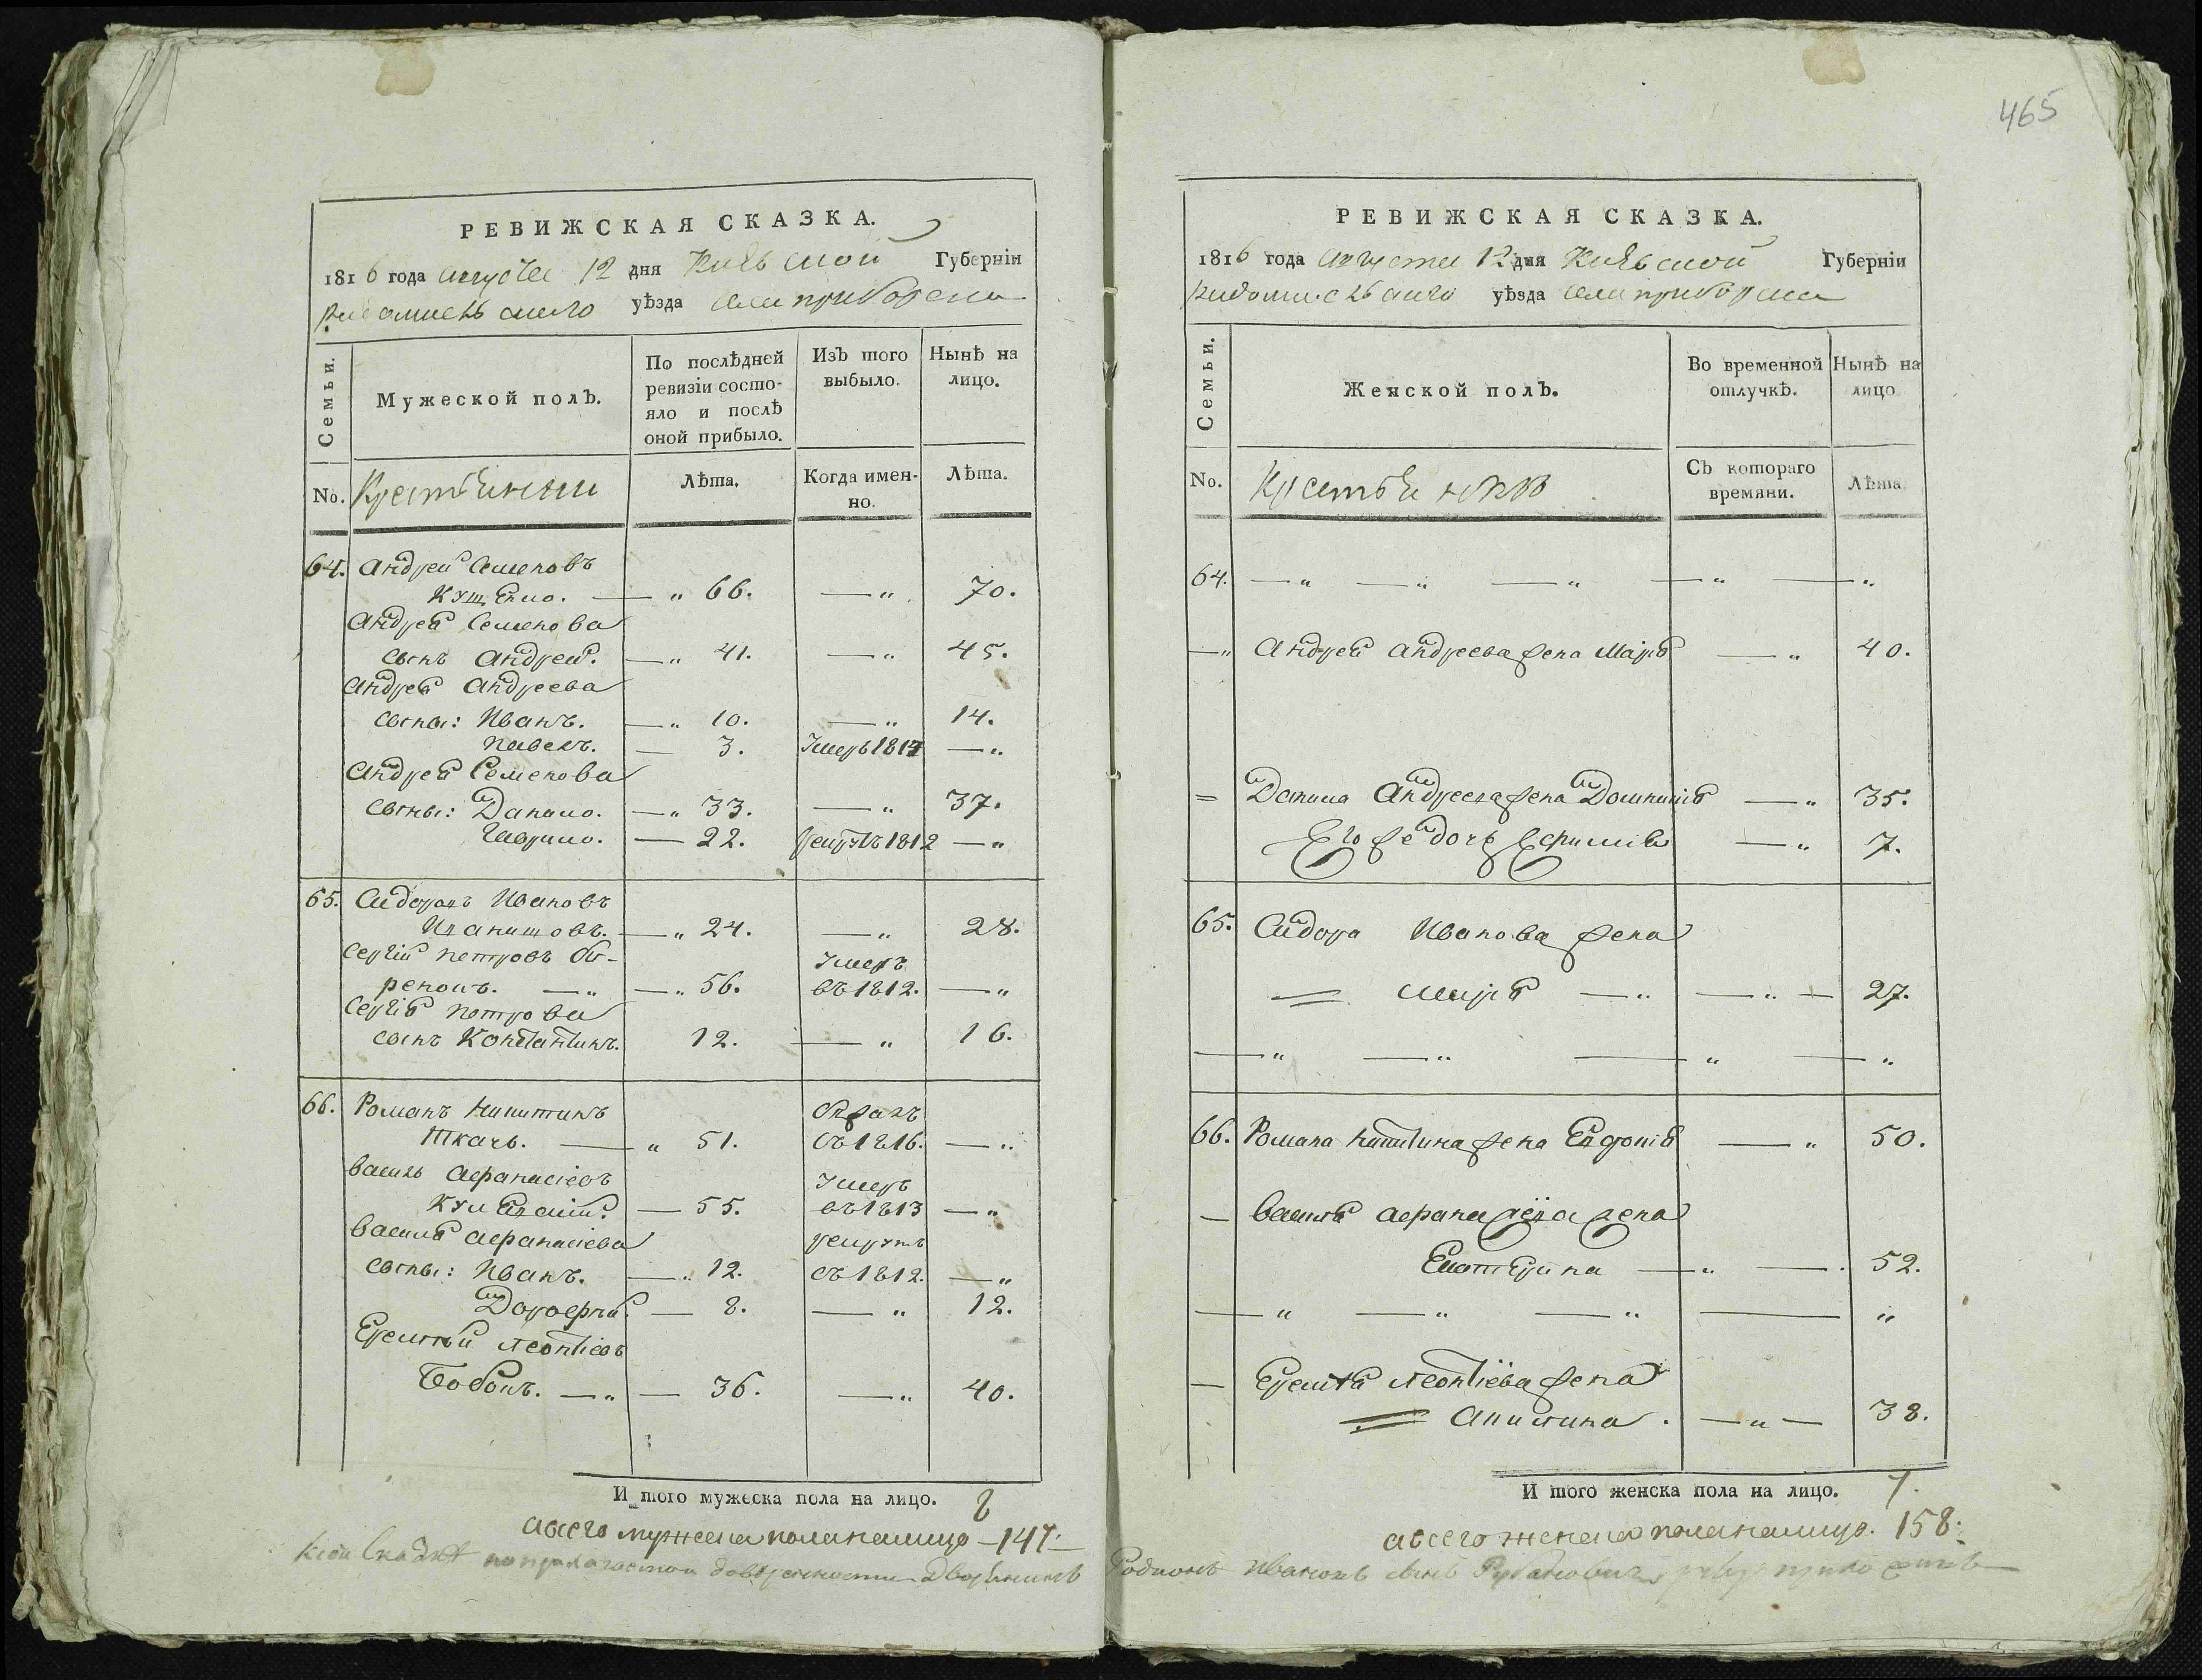 465
РЕВИЖСКАЯ СКАЗКА.
1816 года августа 12 дня Киевской Губерніи
Радомысльского уѣзда села приборска
Семьи.
Мужеской полЪ.
По послѣдней ревизіи состояло и послѣ оной прибыло.
ИзЪ того выбыло.
Нынѣ на лицо.
No.
Крестьяни
Лѣта.
Когда именно.
Лѣта.
64. Андрей Семеновъ
— " 66. — " 70.
Андрея Семенова
сынъ Андрей. — " 41. — " 45.
Андрея Андреева
сыны: Иванъ. — " 10. — " 14.
павелъ. — 3. Умеръ 1814 — "
Андрея Семенова
сыны: Данило. — " 33. — " 37.
Гаврило. — 22. рекрутъ 1812 — "
65. Сидоръ Ивановъ
— " 24. — " 28.
Сергій петровъ
— " — " 56. Умеръ въ 1812. — "
Сергія петрова
сынъ Константинъ. 12. — " 16.
66. Романъ Никитинъ
Ткачъ. — " 51. бѣжалъ въ 1816. — "
василь Афанасіевъ
— 55. Умеръ въ 1813 — "
василя Афанасіева
сыны: Иванъ. — " 12. рекрутъ съ 1812. — "
Дорофей. — 8. — " 12.
Еремѣй леонтіевъ
Бобокъ. — " — 36. — " 40.
И того мужеска пола на лицо. 8
а всего мужеска пола налицо — 147
РЕВИЖСКАЯ СКАЗКА.
1816 года Августа 12 дня Киевской Губерніи
Радомысльского уѣзда села приборска
Семьи.
Женской полЪ.
Во временной отлучкѣ.
Нынѣ на лицо
No.
СЪ котораго времяни.
Лѣта
64. — " — " — " — " — "
— " Андрея Андреева жена Марія — " 40.
= Данила Андреева жена Домникія — " 35.
Его же дочь Ефимія — " 7.
65. Сидора Иванова жена
= Марія — " — " — 27.
— " — " — " — "
66. Романа Никитина жена Евдокія — " 50.
— василя Афанасіева жена
Екатерина — " — . 52.
— " — " — " — "
— Еремѣя леонтіева жена
= Акилина. — " — 38.
И того женска пола на лицо. 7.
а всего женска пола налицо. 158.
Дворянинъ Родионъ Ивановъ сынъ